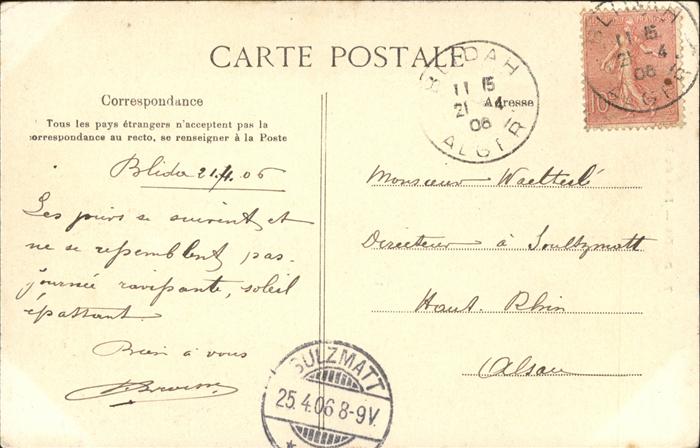 CARTE POSTALE
Correspondance
Tous les pays étrangers n'acceptent pas la
correspondance au recto, se renseigner à la Poste
Adresse
Blida 21.4.06
Les jours se suivent et
ne se ressemblent pas.
journée ravissante, soleil
épattant.
Bien à vous
BLIDAH
11 15
21 -4
06
ALGER
BLIDAH
11 15
21 -4
06
ALGER
10
Monsieur
Directeur à Soultzmatt
Haut. Rhin
Alsace
SULZMATT
25.4.06 8-9V.